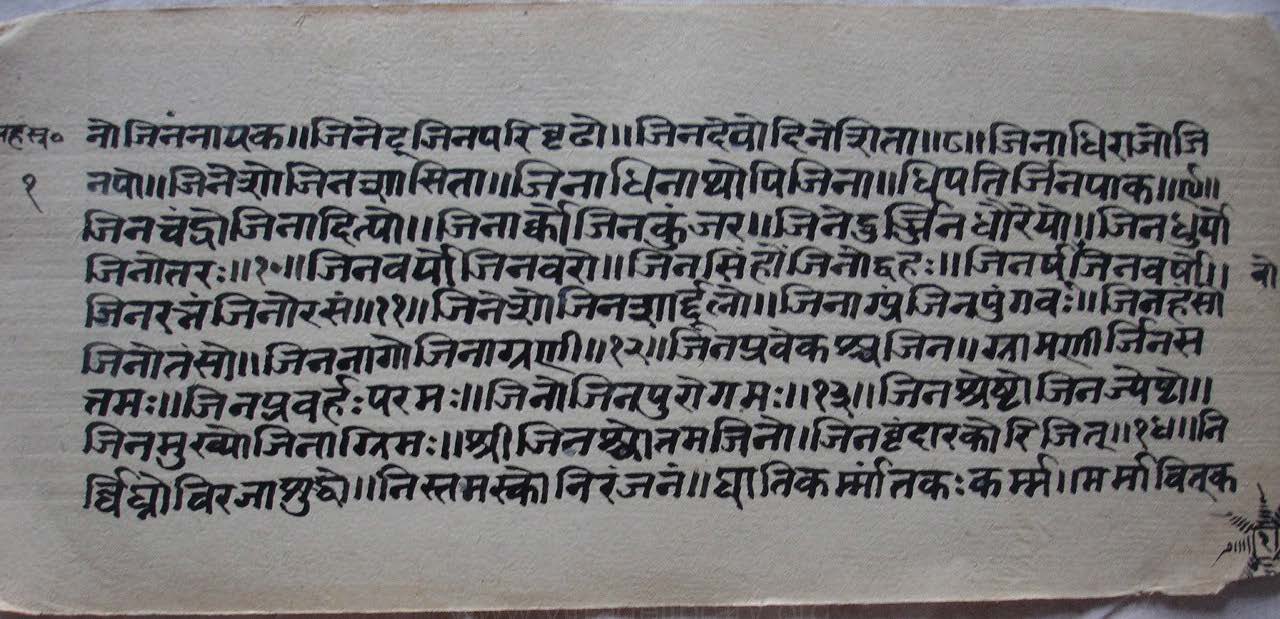 सहस्र०
१
नो जिनंनायक॥जिनेट् जिनपरिवृढो॥जिनदेवो दिनेशिता॥८॥जिनाधिराजो जि
नपो॥जिनेशो जिनशासिता॥जिनाधिनाथोपि जिना॥धिपतिर्जिनपाक॥९॥
जिनचंद्रो जिनादित्यो॥जिनार्को जिनकुंजर॥जिनेडुर्जिनधौरेयो॥जिनधुर्यो
जिनोतरः॥१०॥जिनवर्यो जिनवरो॥जिनसिंहो जिनोद्वहः॥जिनर्षभो जिनवर्षो॥
जिनरत्नं जिनोरसं॥११॥जिनेशो जिनशार्द्दूलो॥जिनाग्र्यं जिनपुंगवः॥जिनहंसो
जिनोतंसो॥जिननागो जिनाग्रणी॥१२॥जिनप्रवेकश्च जिन॥ग्रामणीर्जिनस
त्तमः॥जिनप्रवर्हः परमः॥जिनो जिनपुरोगमः॥१३॥जिनश्रेष्टो जिनज्येष्टो॥
जिनमुख्यो जिनाग्रिमः॥श्री जिनश्चोतमजिनो।जिनवृंदारको रिजित्॥१४॥नि
र्विघ्नो विरजा शुद्धो॥निस्तमस्को निरंजनं॥घातिकर्म्मांतकः कर्म्म।मर्मावित्क